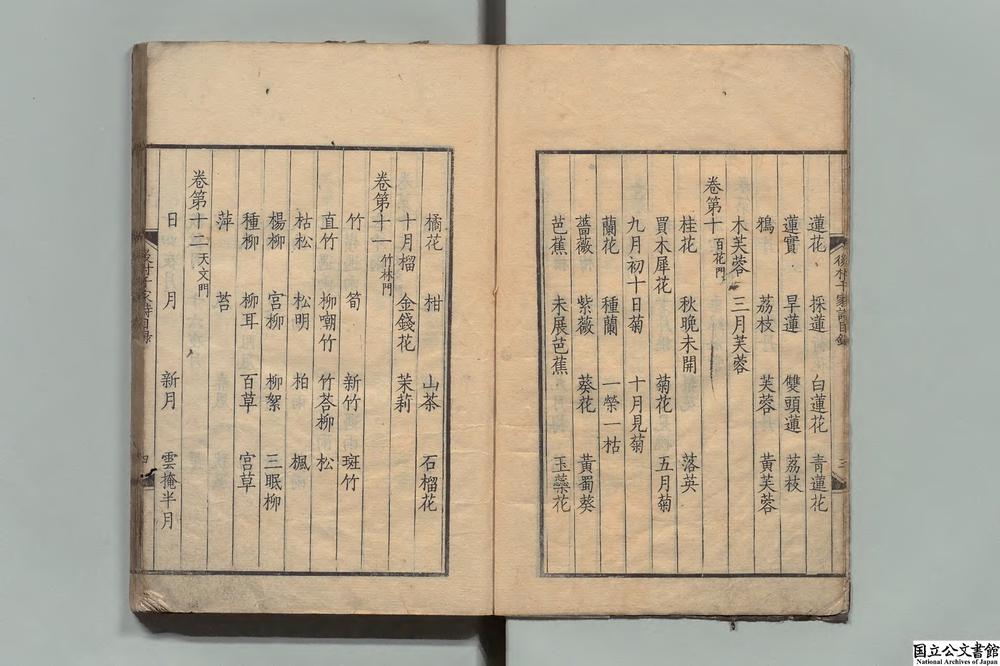 蓮花 採蓮 白蓮花 青蓮花
蓮實 旱蓮 雙頭蓮 荔枝
鴉 荔枝 芙蓉 黃芙蓉
木芙蓉 三月芙蓉
卷第十 百花門
桂花 秋晚未開 落英
買木犀花 菊花 五月菊
九月初十日菊 十月見菊
蘭花 種蘭 一榮一枯
薔薇 紫薇 葵花 黃蜀葵
芭蕉 未展芭蕉 玉藥花
橘花 柑 山茶 石榴花
十月榴 金錢花 茉莉
卷第十一 竹林門
竹 筍 新竹 斑竹
直竹 柳嘲竹 竹荅柳 松
枯松 松明 柏 楓
楊柳 宮柳 柳絮 三眠柳
種柳 柳耳 百草 宮草
萍 苔
卷第十二 天文門
日 月 新月 雲掩半月
四
国立公文書館
National Archives of Japan